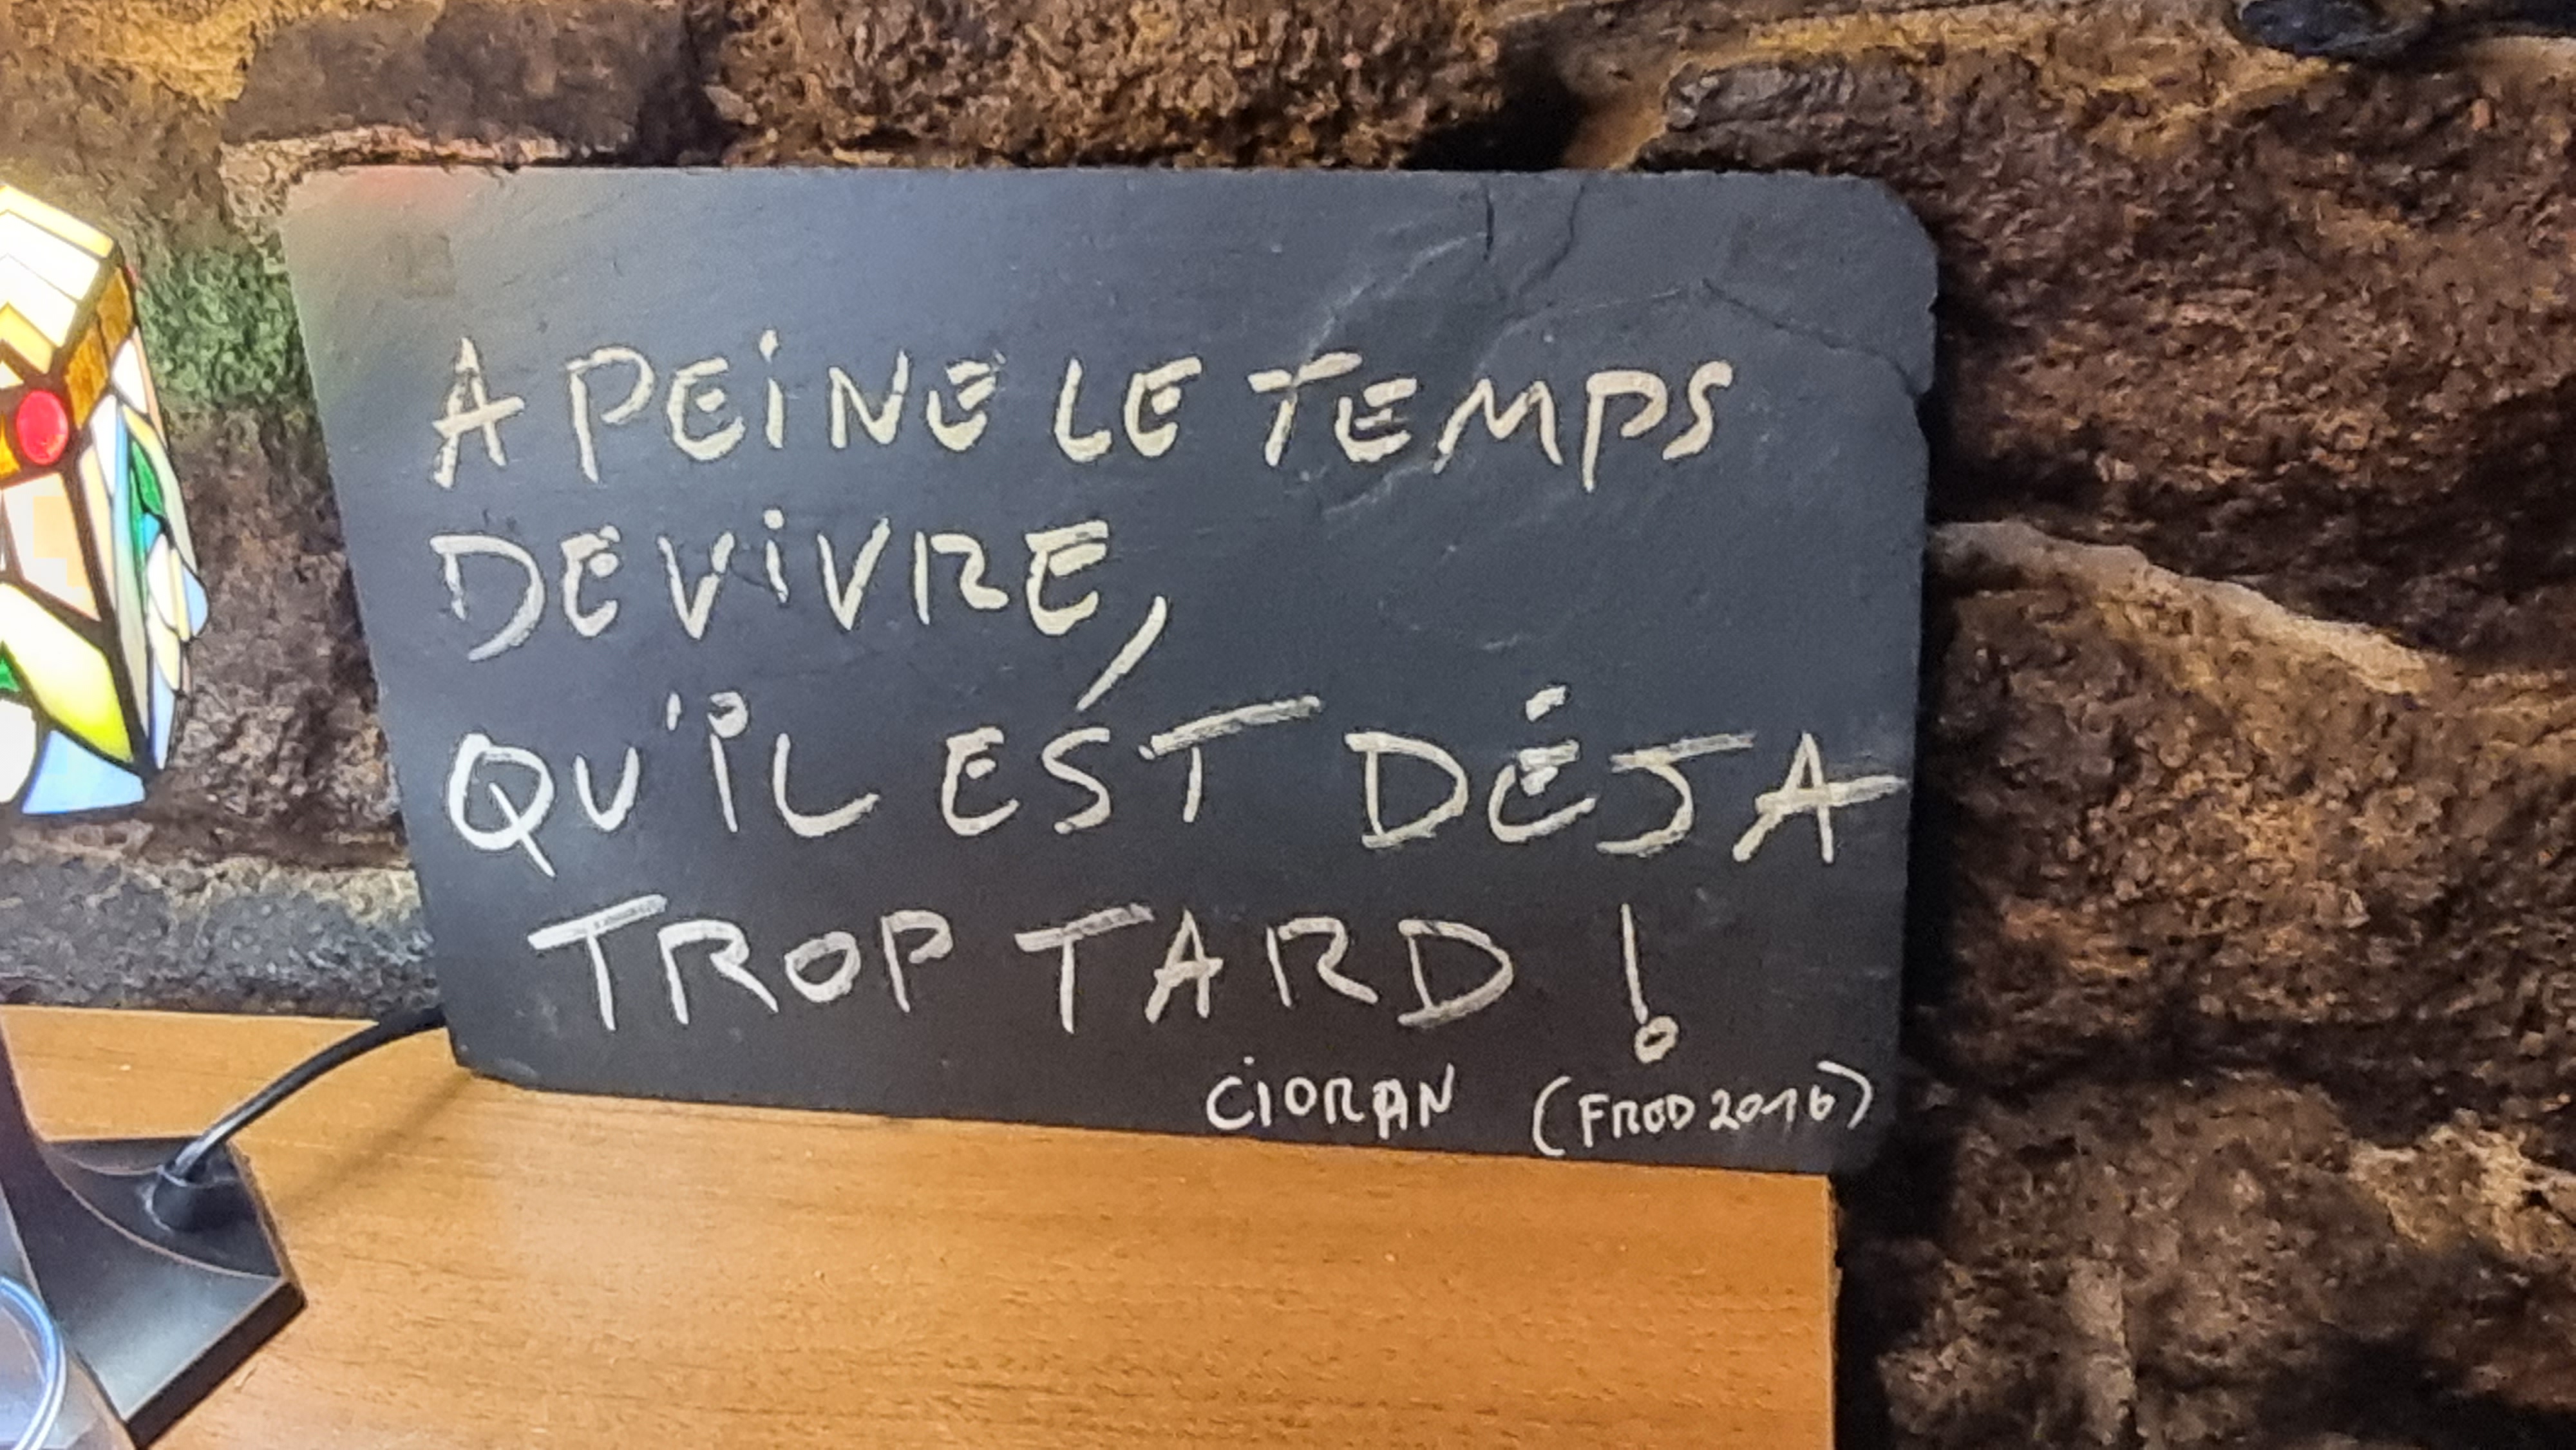 A PEINE LE TEMPS
DE VIVRE,
QU'IL EST DÉJA
TROP TARD !
CIORAN (FRED 2016)